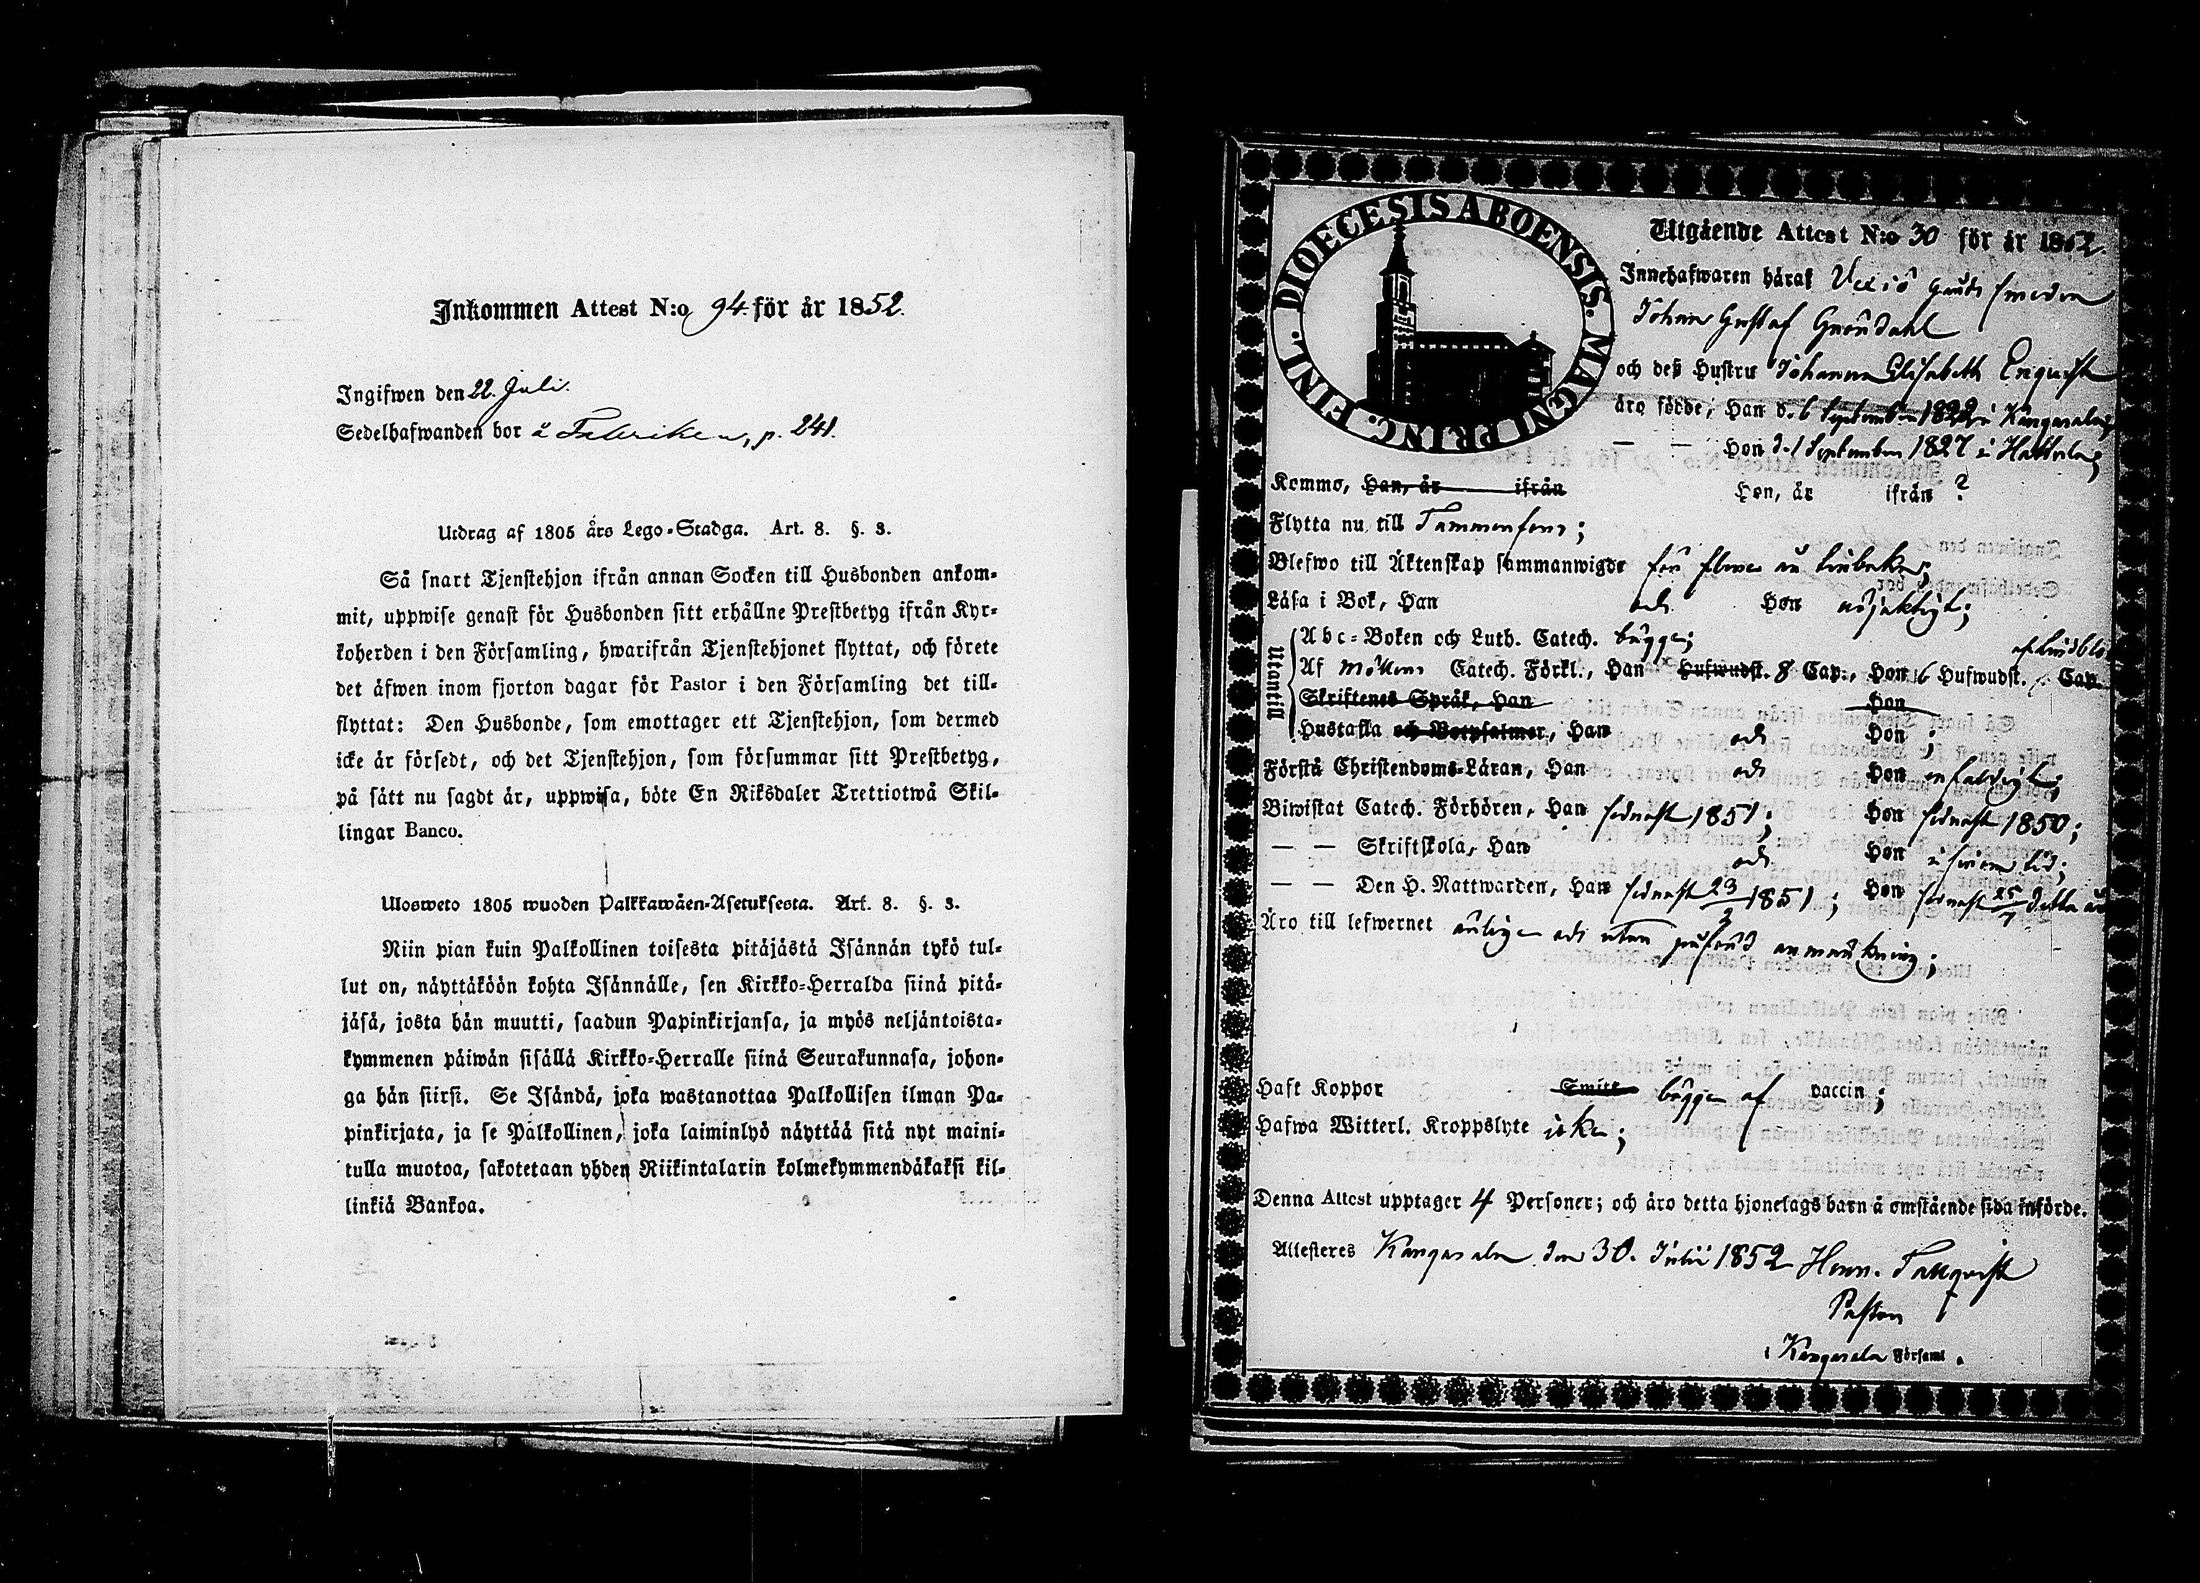 Inkommen Attest N:o 94 för år 1852.
Ingifwen den 22. Juli.
Sedelhafwanden bor å Fabriken, p. 241.
Utdrag af 1805 års Lego-Stadga. Art. 8. §. 3.
Så snart Tjenstehjon ifrån annan Socken till Husbonden ankom-
mit, uppwise genast för Husbonden sitt erhållne Prestbetyg ifrån Kyr-
koherden i den Församling, hwarifrån Tjenstehjonet flyttat, och förete
det äfwen inom fjorton dagar för Pastor i den Församling det till-
flyttat: Den Husbonde, som emottager ett Tjenstehjon, som dermed
icke är försedt, och det Tjenstehjon, som försummar sitt Prestbetyg,
på sätt nu sagdt är, uppwisa, böte En Riksdaler Trettiotwå Skil-
lingar Banco.
Ulosweto 1805 wuoden Palkkawäen-Asetuksesta. Art. 8. §. 3.
Niin pian kuin Palkollinen toisesta pitäjästä Isännän tykö tul-
lut on, näyttäköön kohta Isännälle, sen Kirkko-Herralda siinä pitä-
jäsä, josta hän muutti, saadun Papinkirjansa, ja myös neljäntoista-
kymmenen päiwän sisällä Kirkko-Herralle siinä Seurakunnasa, johon-
ga hän siirsi. Se Isändä, joka wastanottaa Palkollisen ilman Pa-
pinkirjata, ja se Palkollinen, joka laiminlyö näyttää sitä nyt maini-
tulla muotoa, sakotetaan yhden Riikintalarin kolmekymmendäkaksi kil-
linkiä Bankoa.
DIOECESIS ABOENSIS. MAGNI PRINC. FINL.
Utgående Attest N:o 30 för år 1852.
Innehafwaren häraf smeden
Johan Gustaf Gröndahl
och deß Hustru Johanna Elisabeth Enqvist
äro födde, Han d. 6 September 1822 i Kangasala;
— — Hon d. 1 September 1827 i Hattula;
Kommo, Han, år ifrån Hon, år ifrån ?
Flytta nu till Tammerfors;
Blefwo till Äktenskap sammanwigde för flere år tillbaka;
Läsa i Bok, Han och Hon nöjaktigt;
Utantill
Abc-Boken och Luth. Catech. begge;
af Lindblo
Af Möllers Catech. Förkl., Han Hufwudst. 8 Cap., Hon 6 Hufwudst. Cap.
Skriftenes Språk, Han Hon
Hustafla och Botpsalmer, Han och Hon ;
Förstå Christendoms-Läran, Han och Hon enfaldigt;
Biwistat Catech. Förhören, Han sednast 1851; Hon sednast 1850;
— — Skriftskola, Han och Hon i sinom tid;
— — Den H. Nattwarden, Han sednast 23/2 1851; Hon sednast 25/7 detta år
Äro till lefwernet ärlige och utan anmärkning;
Haft Koppor Smitt begge af vaccin;
Hafwa Witterl. Kroppslyte icke;
Denna Attest upptager 4 Personer; och äro detta hjonelags barn å omstående sida införde.
Attesteres Kangasala den 30. Julii 1852 Henr. Tallqvist
Pastor
i Kangasala Församl.